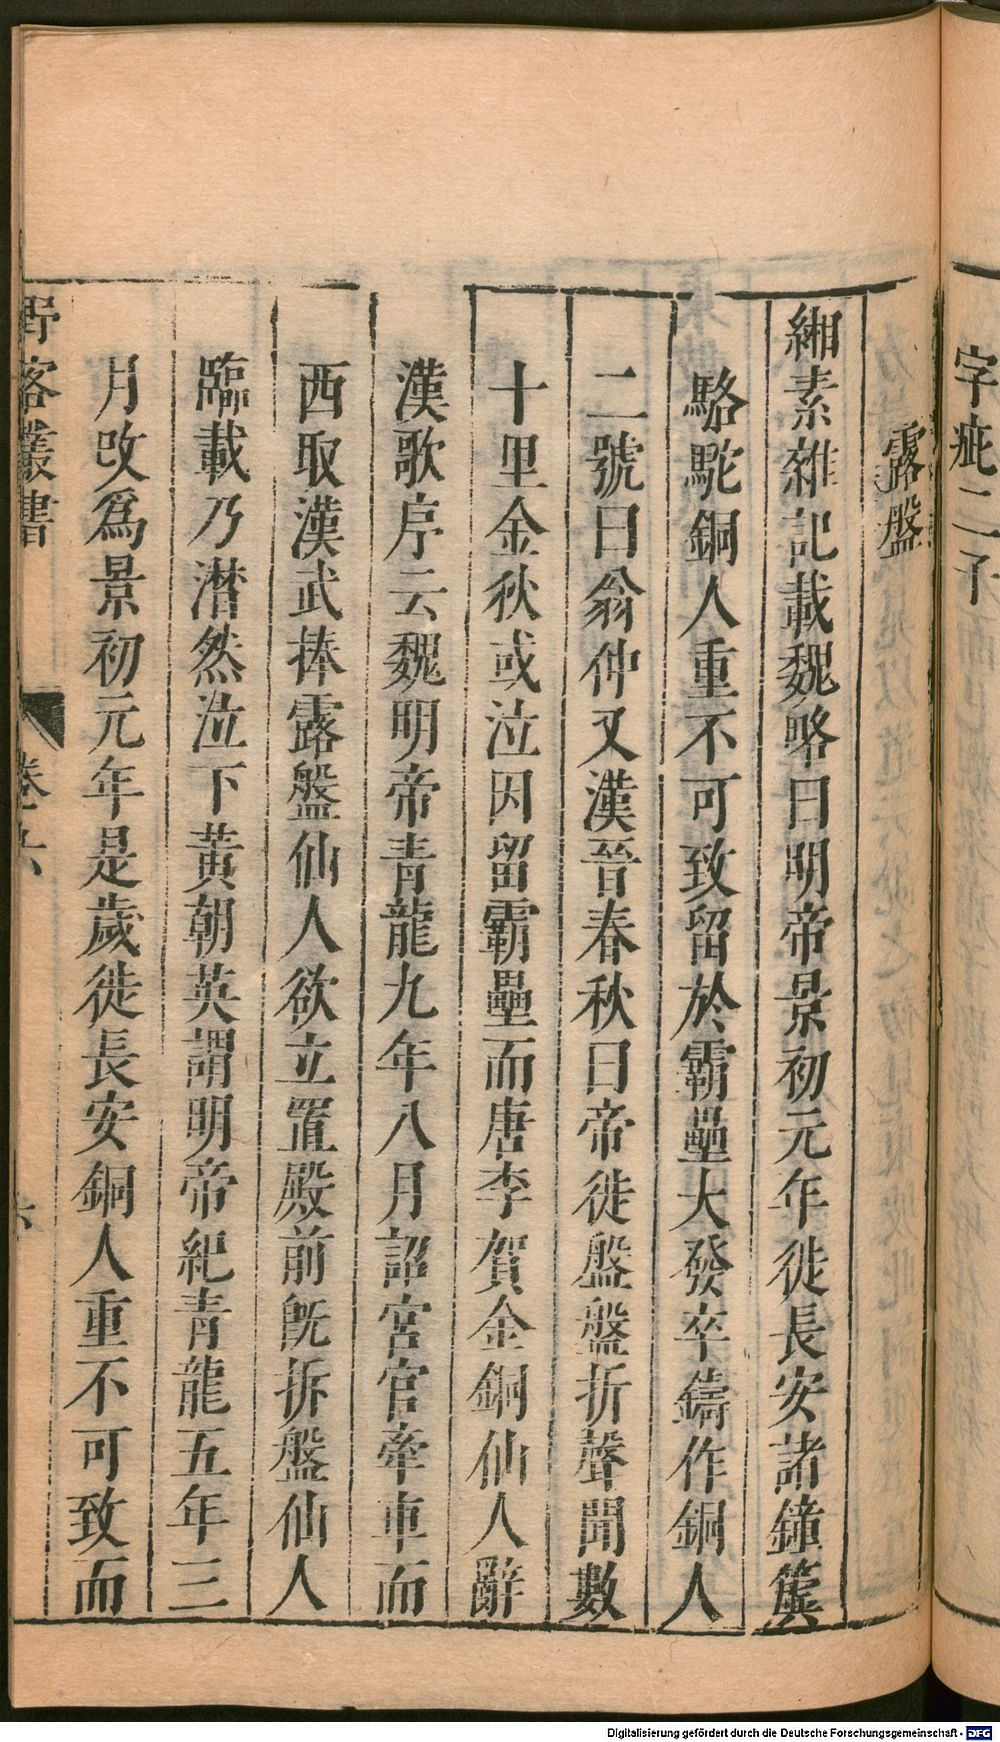 字疵二了
露盤
緗素雜記載魏略曰明帝景初元年徙長安諸鐘簴
駱駝銅人重不可致留於霸壘大發卒鑄作銅人
二號曰翁仲又漢晉春秋曰帝徙盤盤折聲聞數
十里金秋或泣因留霸壘而唐李賀金銅仙人辭
漢歌序云魏明帝青龍九年八月詔宮官牽車而
西取漢武捧露盤仙人欲立置殿前旣拆盤仙人
臨載乃潸然泣下黃朝英謂明帝紀青龍五年三
月改爲景初元年是歲徙長安銅人重不可致而
野客叢書 卷六 六
Digitalisierung gefördert durch die Deutsche Forschungsgemeinschaft - DFG